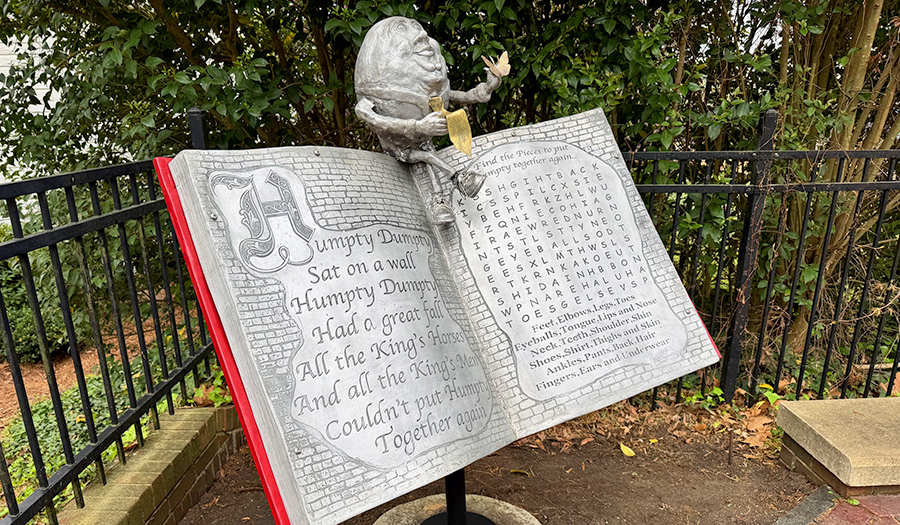 Humpty Dumpty
Sat on a wall
Humpty Dumpty
Had a great fall
All the King's Horses
And all the King's Men
Couldn't put Humpty
Together again
Find the Pieces to put
Humpty together again...
S H G I H T B A C
C S S P I L C X S I E
Y B E N F R K Z H L W U
I Z Q N I E C D H I A G
I R A E W R E D N U R
N T S T L S T T Y N E O
G E Y E B A L L S O D T
R E S X L M T A W S L S
T R K R N K A K O E U S
S H I D A T N H B B O N
W P N A R E H A L U H A
T O E S G E L S E V S
Feet, Elbows, Legs, Toes
Eyeballs, Tongue, Lips and Nose
Neck, Teeth, Shoulder Shin
Shoes, Shirt, Thighs and Skin
Ankles, Pants, Back, Hair
Fingers, Ears and Underwear